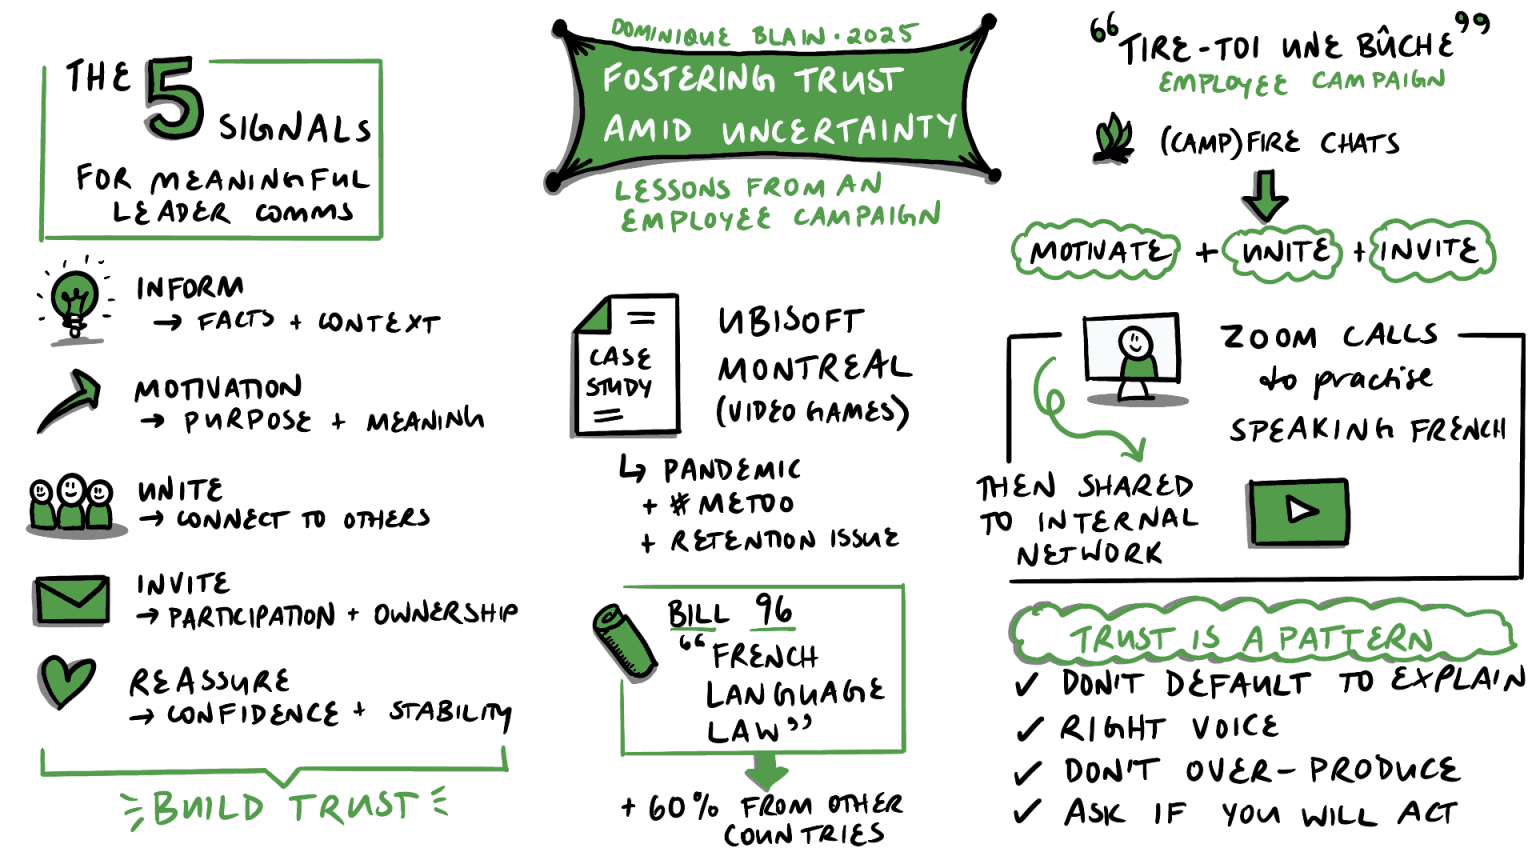 DOMINIQUE BLAIN · 2025
FOSTERING TRUST
AMID UNCERTAINTY
LESSONS FROM AN
EMPLOYEE CAMPAIGN
THE 5
SIGNALS
FOR MEANINGFUL
LEADER COMMS
INFORM
→ FACTS + CONTEXT
MOTIVATION
→ PURPOSE + MEANING
UNITE
→ CONNECT TO OTHERS
INVITE
→ PARTICIPATION + OWNERSHIP
REASSURE
→ CONFIDENCE + STABILITY
BUILD TRUST
CASE
STUDY
UBISOFT
MONTREAL
(VIDEO GAMES)
↳ PANDEMIC
+ #METOO
+ RETENTION ISSUE
BILL 96
“FRENCH
LANGUAGE
LAW”
+ 60% FROM OTHER
COUNTRIES
“TIRE-TOI UNE BÛCHE”
EMPLOYEE CAMPAIGN
(CAMP)FIRE CHATS
MOTIVATE + UNITE + INVITE
ZOOM CALLS
to practise
SPEAKING FRENCH
THEN SHARED
TO INTERNAL
NETWORK
TRUST IS A PATTERN
✓ DON'T DEFAULT TO EXPLAIN
✓ RIGHT VOICE
✓ DON'T OVER-PRODUCE
✓ ASK IF YOU WILL ACT